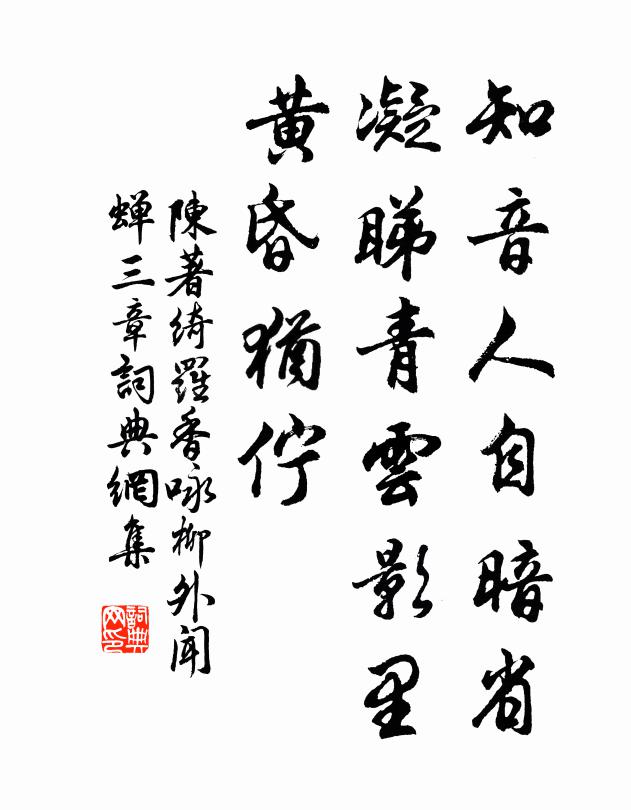 知音人自暗省
凝睇青雲影里
黄昏猶佇
陳著綺羅香咏柳外聞
蟬三章詞典網集
詞典
网印